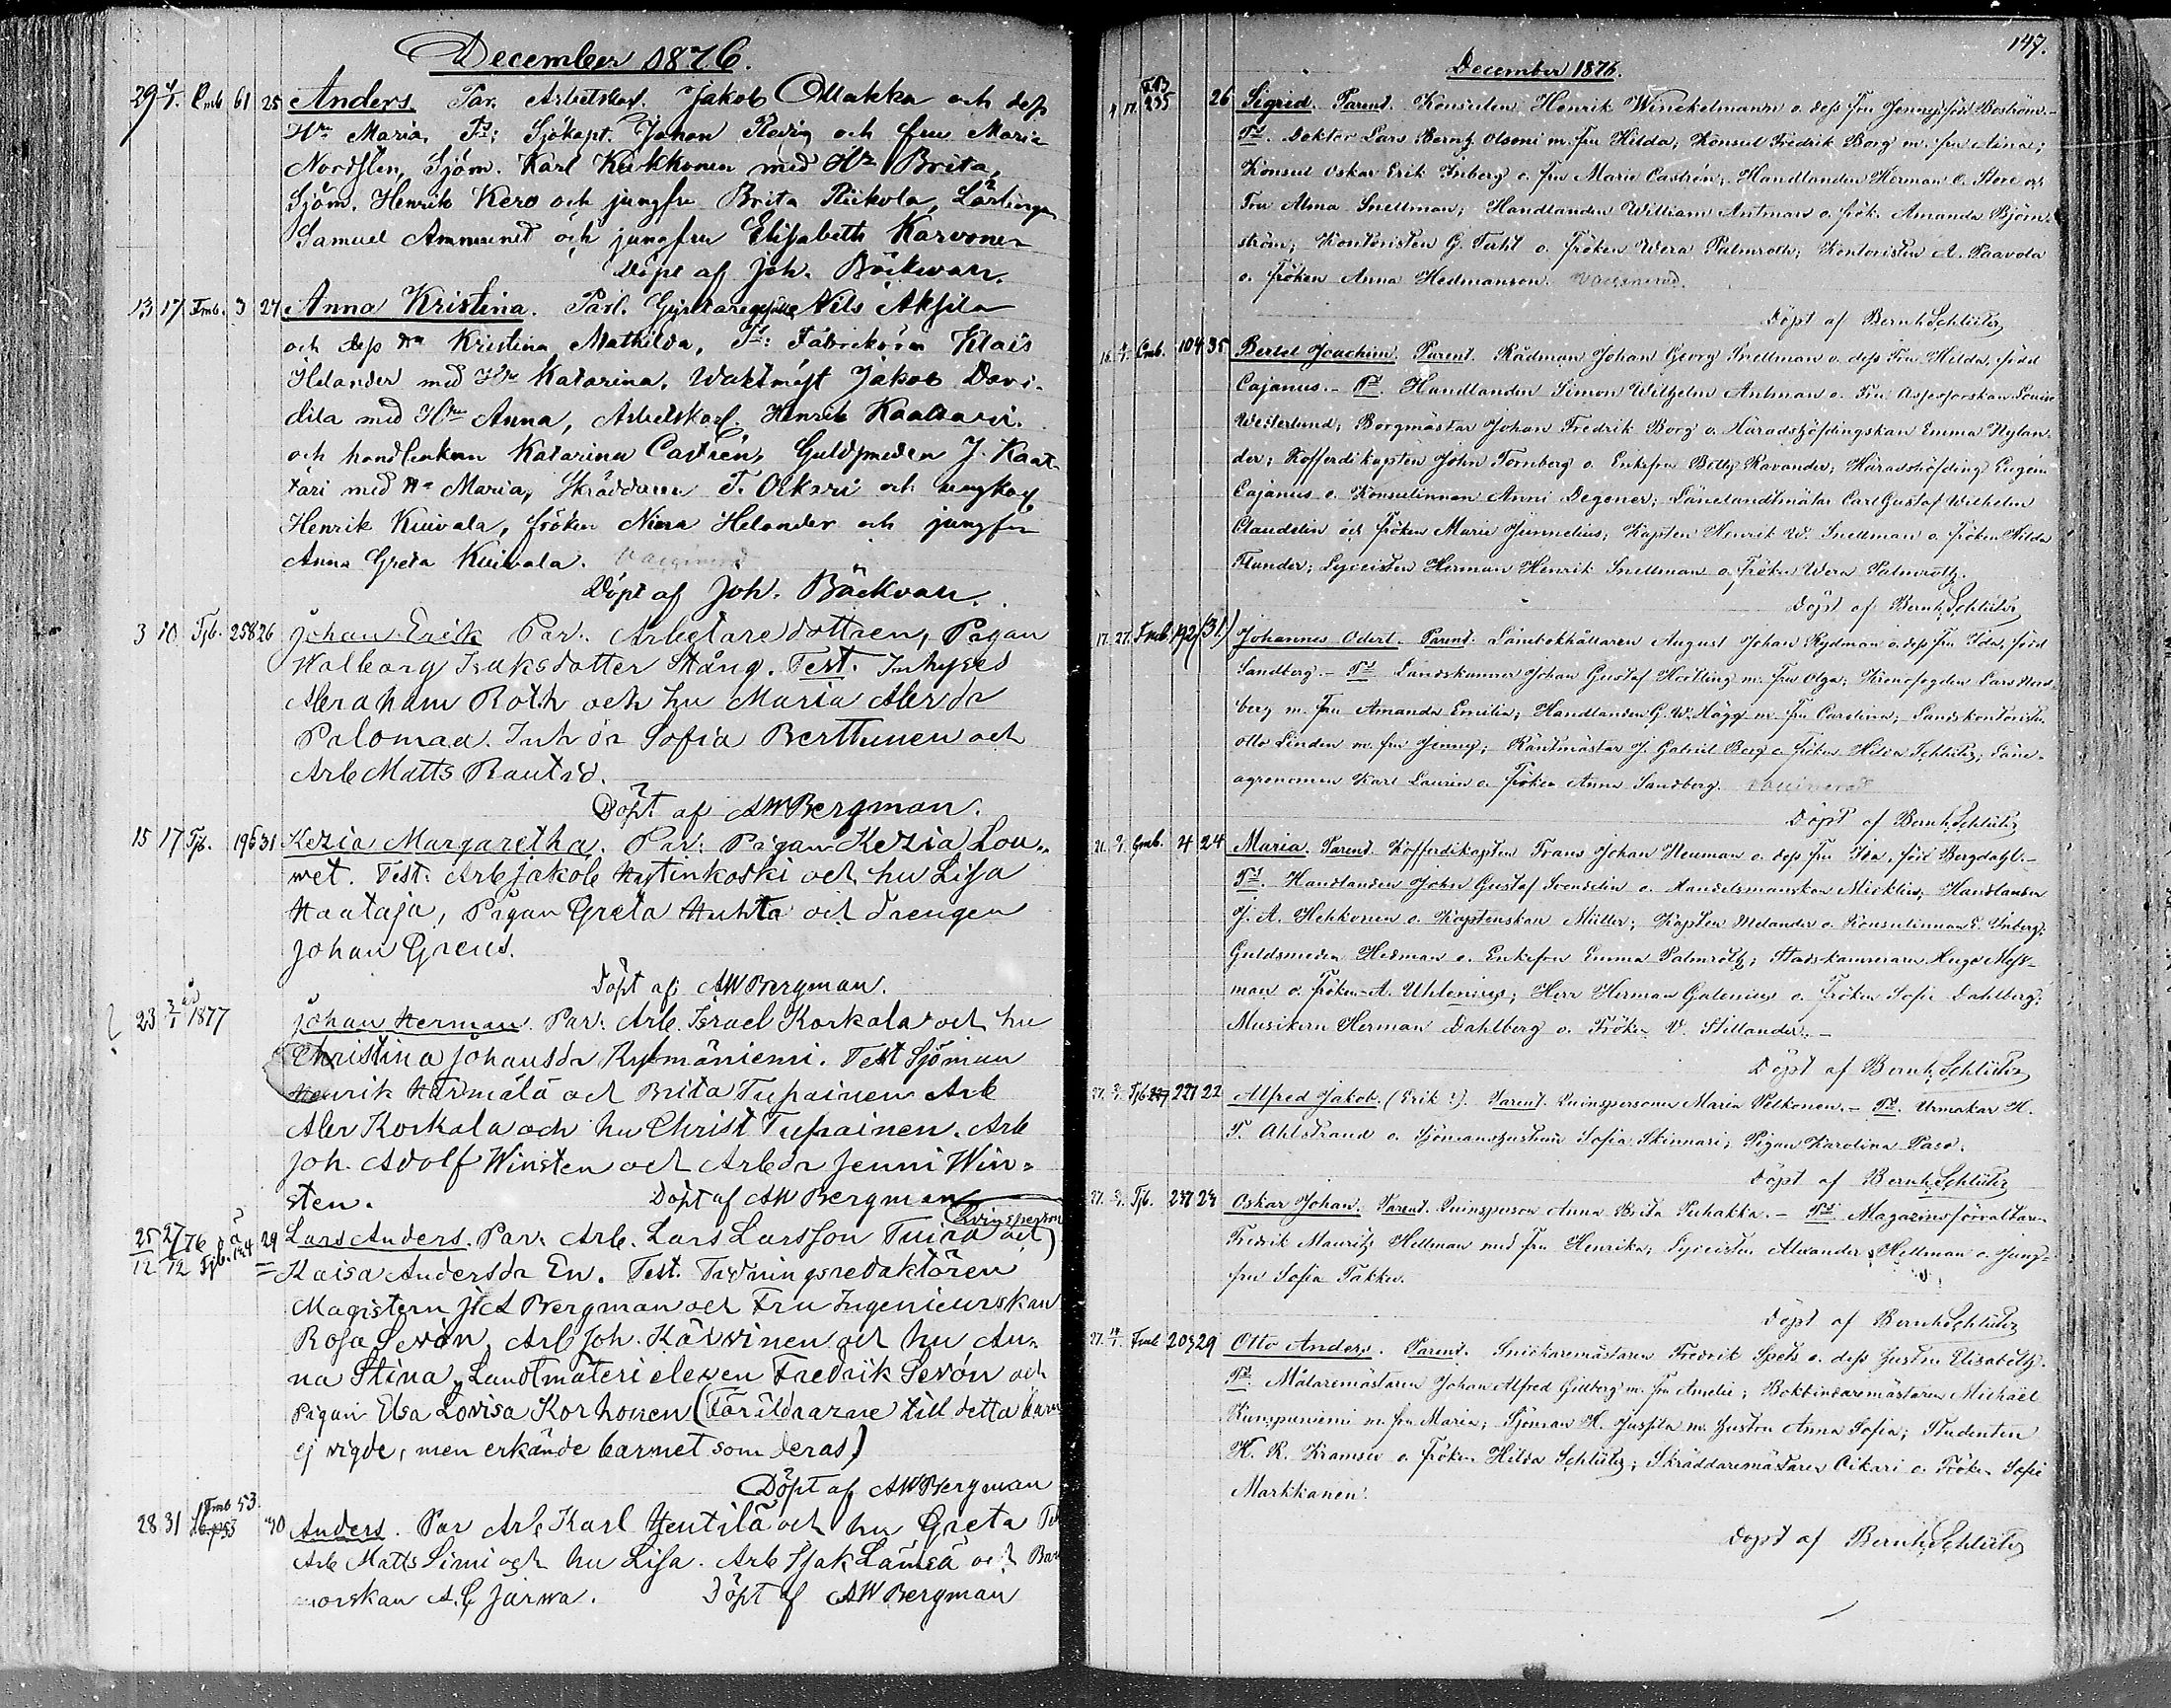 December 1876.
29 4/1. Cmb 61 25 Anders. Par. Arbetskarl. Jakob Ollakka och dess
Hu Maria, Tt: Sjökapt. Johan Redig och fru Maria
Sjöm. Karl Kukkonen med Hu Brita,
Sjöm. Henrik Kero och jungfru Brita Riekola, Lärlingen
Samuel Ammunet och jungfru Elisabeth Karvonen
Döpt af Joh. Bäckvall.
13 17 Fmb. 3 27 Anna Kristina. Par. Nils Aksila
och dess Hu Kristina Mathilda, Tt: Klas
Helander med Hu Katarina. Waktmäst Jakob Davi-
dila med Hu Anna, Arbetskarl. Henrik Kaattari
och handlenkan Katarina Castrén, Guldsmeden J. Kaat-
tari med Hu Maria, Skräddaren T. Oikari och ungkarl
Henrik Kuivala, fröken Helander och jungfru
Anna Greta Kuivala. Vaccinerad
Döpt af Joh. Bäckvall.
3 10 Tjb. 258 26 Johan Erik Par. Arbetaredottren, Pigan
Walborg Isaksdotter Stång. Test. Inhyses
Abraham Roth och hu Maria Absdr
Palomaa. Inh dr Sofia Berttunen och
Arb Matts Rautio.
Döpt af AWBergman.
15 17 Tjb. 196 31 Kezia Margaretha. Par: Pigan Kezia Lou-
wet. Test. Arb Jakob Hystinkoski och hu Lisa
Haataja, Pigan Greta Huhta och drengen
Johan Greus.
Döpt af AWBergman.
23 2/1 1877 Johan Herman. Par: Arb. Israel Korkala och hu
Christina Johansdr Kylmäniemi. Test Sjöman
Henrik Härmälä och Brita Tupainen Arb
Abr Korkala och hu Christ Tupainen. Arb
Joh. Adolf Winsten och Arb dr Jenni Win-
sten. Döpt af AWBergman
25/12 27/12 76 Tjb. 29 Lars Anders. Par. Arb. Lars Larsson Tuira och (Qvinsperson)
Kaisa Andersdr En. Test. Tidningsredaktören
Magistern Bergman och Fru Ingenieurskan
Rosa Sevón, Arb Joh. Karwinen och hu An-
na Stina, Landtmäteri eleven Fredrik Sevón och
Pigan Elsa Lovisa Korhonen (Föräldrarne till detta barn
ej vigde, men erkände barnet som deras)
Döpt af AWBergman
28 31 Fmb 53. 30 Anders. Par Arb Karl Hentilä och hu Greta
Arb Matts Simi och hu Lisa. Arb Isak Lämsä och Bar
morskan A. C Järwa. Döpt af AWBergman
147.
December 1876.
4. 17. 235 26 Sigrid. Parent. Konsulen Henrik Winckelmann o. dess fru Jenny, född Boström.-
Tt. Doktor Lars Bernh. Olsoni m. fru Hilda; Konsul Fredrik Borg m. fru Aina;
Konsul Oskar Erik Inberg o. fru Maria Castrén; Handlanden Herman C. Store och
Fru Alma Snellman; Handlanden William Antman o. frök. Amanda Björn-
ström; Kontoristen G. o. Fröken Wera Palmroth; Kontoristen A. Paavola
o. Fröken Anna Hedmanson. Vaccinerad.
Döpt af Bernh. Schlüter
16. 4/1. Cmb. 104 35 Bertel Joachim. Parent. Rådman Johan Georg Snellman o. dess Fru Hilda, född
Cajanus. - Tt. Handlanden Simon Wilhelm Antman o. Fru Assessorskan Louise
Westerlund; Borgmästar Johan Fredrik Borg o. Häradshöfdingskan Emma Nylan-
der; Kofferdikapten John Tornberg o. Enkefru Betty Ravander; Häradshöfding Eugén
Cajanus o. Konsulinnan Anni Degener; Länelandtmätar Carl Gustaf Wilhelm
Claudelin och fröken Maria Junnelius; Kapten Henrik W. Snellman o. fröken Hilda
Flander; Lyceisten Herman Henrik Snellman o. Fröken Wera Palmroth.
Döpt af Bernh. Schlüter
17. 27. Fmb. 192 (31) Johannes Odert. Parent. Länebokhållaren August Johan Rydman o. dess fru Ida, född
Sandberg. - Tt. Landskamrer Johan Gustaf Hortling m. fru Olga; Kronofogden Lars
berg m. fru Amanda Emilia; Handlanden G. W. Hägg m. fru Carolina; Landskontorist
Otto Linden m. fru Jenny; Räntmästar J. Gabriel Berg o. fröken Hilda Schlüter; Läne-
agronomen Karl Laurin o. Fröken Anna Sandberg. vaccinerad
Döpt af Bernh. Schlüter
21. Gmb. 4 24 Maria. Parent. Kofferdikapten Frans Johan Neuman o. dess fru Ida, född Bergdahl.-
Tt. Handlanden John Gustaf Svendelin o. Handelsmanskan Micklin; Handlanden
J. A. Heikkonen o. Kaptenskan Müller; Kapten Melander o. Konsulinnan E. Inberg;
Guldsmeden Hedman o. Enkefru Emma Palmroth; Stadskamreraren Hugo Mess-
man o. Fröken A. Uhlenius; Herr Herman Galenius o. Fröken Sofie Dahlberg;
Musikern Herman Dahlberg o. Fröken V. Stillander. -
Döpt af Bernh. Schlüter
27. Tjb 227 22 Alfred Jakob. (Erik!). Parent. Quinspersonen Maria Pelkonen. - Tt. Urmakar K.
F. Ahlstrand o. Sjömanshustrun Sofia Skinnari; Pigan Karolina Paso.
Döpt af Bernh. Schlüter
27. Tjb. 237 23 Oskar Johan. Parent. Quinsperson Anna Brita Puhakka. - Tt. Magazinsförvaltaren
Fredrik Mauritz Hellman med fru Henrika; Lyceisten Alexander Hellman o. Jung-
fru Sofia Takku.
Döpt af Bernh. Schlüter
27. Fmb 203 29 Otto Anders. Parent. Snickaremästaren Fredrik Spets o. dess hustru Elisabeth.
Tt. Målaremästaren Johan Alfred Gidberg m. fru Amelie; Bokbindaremästaren Michael
m. fru Maria; Sjöman H. Jussila m. hustru Anna Sofia; Studenten
K. R. Kramsu o. Fröken Hilda Schlüter; Skräddaremästaren Oikari o. Fröken Sofie
Markkanen.
Döpt af Bernh. Schlüter